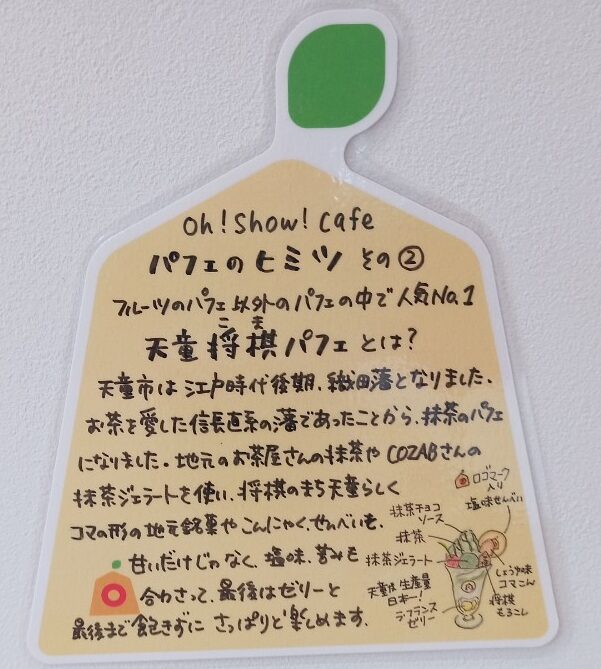 Oh!Show!Cafe
パフェのヒミツ その②
フルーツのパフェ以外のパフェの中で人気No.1
こま
天童将棋パフェとは?
天童市は江戸時代後期、織田藩となりました。
お茶を愛した信長直系の藩であったことから、抹茶のパフェ
になりました。地元のお茶屋さんの抹茶やCOZABさんの
抹茶ジェラートを使い、将棋のまち天童らしく
コマの形の地元銘菓やこんにゃく、せんべいも。
甘いだけじゃなく、塩味、苦みも
合わさって、最後はゼリーと
最後まで飽きずにさっぱりと楽しめます。
ロゴマーク
入り
塩味せんべい
抹茶チョコ
ソース
抹茶
抹茶ジェラート
しょうゆ味
コマこん
天童は生産量
日本一!
ラ・フランス
ゼリー
将棋
もろこし